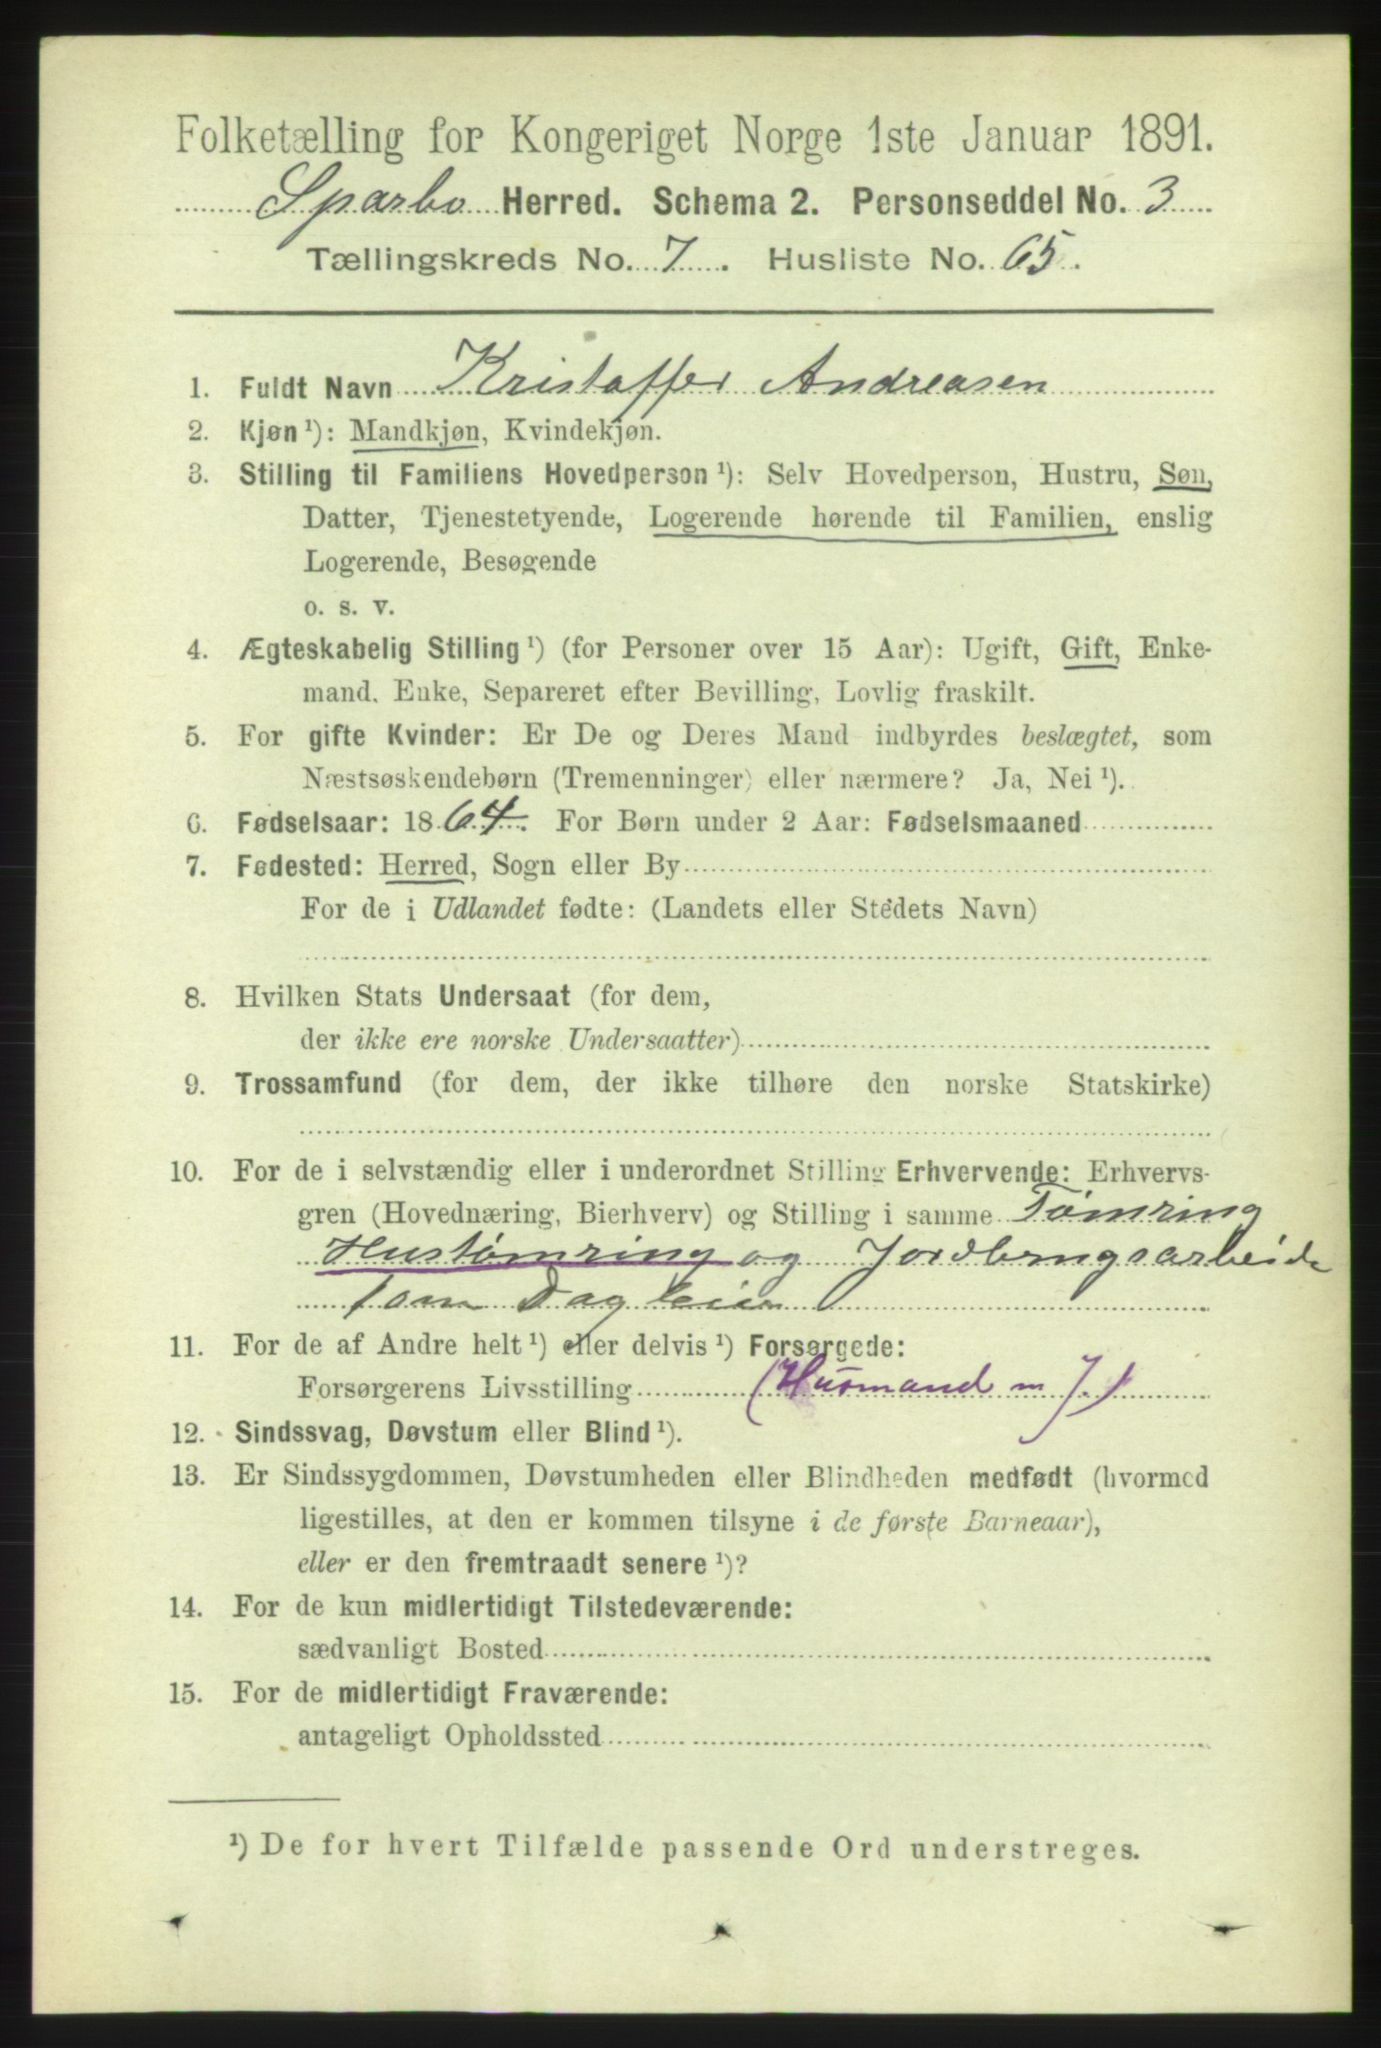 Folketælling for Kongeriget Norge 1ste Januar 1891.
Sparbo Herred. Schema 2. Personseddel No. 3
Tællingskreds No. 7. Husliste No. 65.
1. Fuldt Navn Kristoffer Andreasen
2. Kjøn ¹): Mandkjøn, Kvindekjøn.
3. Stilling til Familiens Hovedperson ¹): Selv Hovedperson, Hustru, Søn,
Datter, Tjenestetyende, Logerende hørende til Familien, enslig
Logerende, Besøgende
o. s. v.
4. Ægteskabelig Stilling ¹) (for Personer over 15 Aar): Ugift, Gift, Enke-
mand, Enke, Separeret efter Bevilling, Lovlig fraskilt.
5. For gifte Kvinder: Er De og Deres Mand indbyrdes beslægtet, som
Næstsøskendebørn (Tremenninger) eller nærmere? Ja, Nei ¹).
6. Fødselsaar: 1864. For Børn under 2 Aar: Fødselsmaaned
7. Fødested: Herred, Sogn eller By
For de i Udlandet fødte: (Landets eller Stedets Navn)
8. Hvilken Stats Undersaat (for dem,
der ikke ere norske Undersaatter)
9. Trossamfund (for dem, der ikke tilhøre den norske Statskirke)
10. For de i selvstændig eller i underordnet Stilling Erhvervende: Erhvervs-
gren (Hovednæring, Bierhverv) og Stilling i samme Tømring
Hustømring og Jordbrugsarbeide
som Dagleier
11. For de af Andre helt ¹) eller delvis ¹) Forsørgede:
Forsørgerens Livsstilling (Husmand m J.)
12. Sindssvag, Døvstum eller Blind ¹).
13. Er Sindssygdommen, Døvstumheden eller Blindheden medfødt (hvormed
ligestilles, at den er kommen tilsyne i de første Barneaar),
eller er den fremtraadt senere ¹)?
14. For de kun midlertidigt Tilstedeværende:
sædvanligt Bosted
15. For de midlertidigt Fraværende:
antageligt Opholdssted
¹) De for hvert Tilfælde passende Ord understreges.